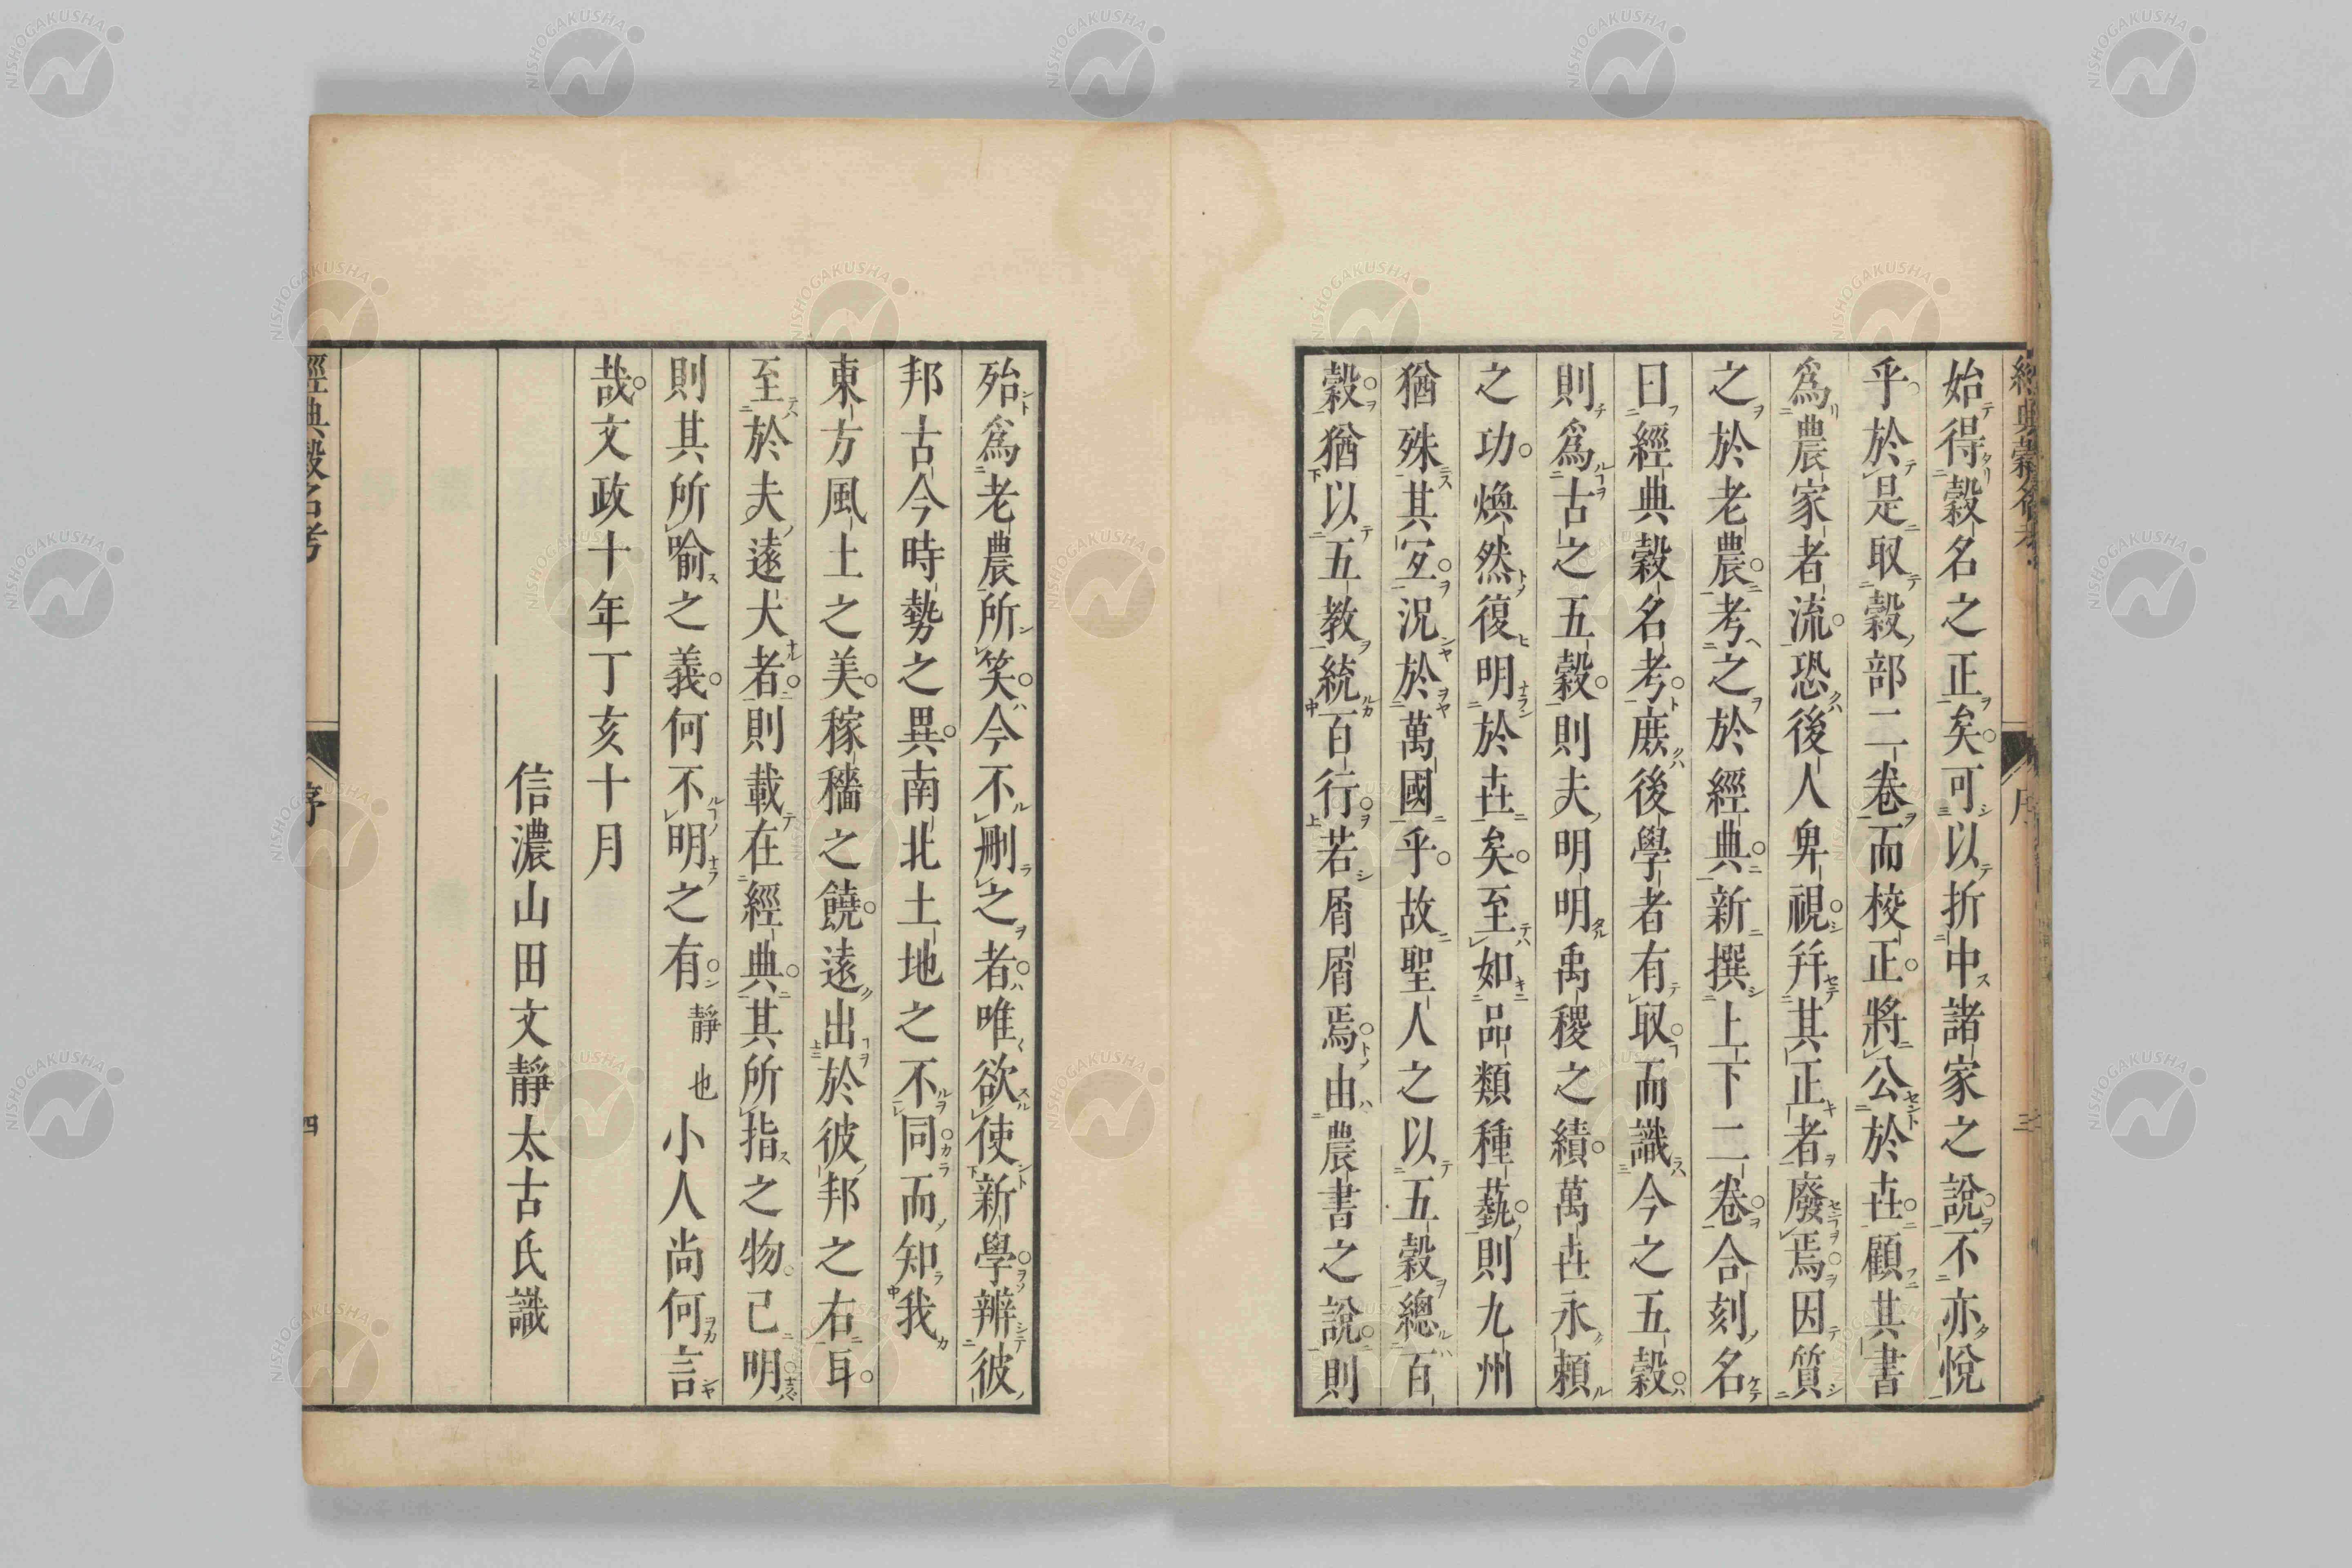 始得穀名之正矣可以折中諸家之說不亦悅
乎於是取穀部二卷而校正將公於世顧其書
爲農家者流恐後人卑視幷其正者廢焉因質
之於老農考之於經典新撰上下二卷合刻名
曰經典穀名考庶後學者有取而識今之五穀
則爲古之五穀則夫明明禹稷之績萬世永賴
之功煥然復明於世矣至如品類種藝則九州
猶殊其宜況於萬國乎故聖人之以五穀總百
穀猶以五教統百行若屑屑焉由農書之說則
殆爲老農所笑今不刪之者唯欲使新學辨彼
邦古今時勢之異南北土地之不同而知我
東方風土之美稼穡之饒遠出於彼邦之右耳
至於夫遠大者則載在經典其所指之物已明
則其所喻之義何不明之有靜也小人尚何言
哉文政十年丁亥十月
信濃山田文靜太古氏識
經典穀名考
序
四
NISHOGAKUSHA